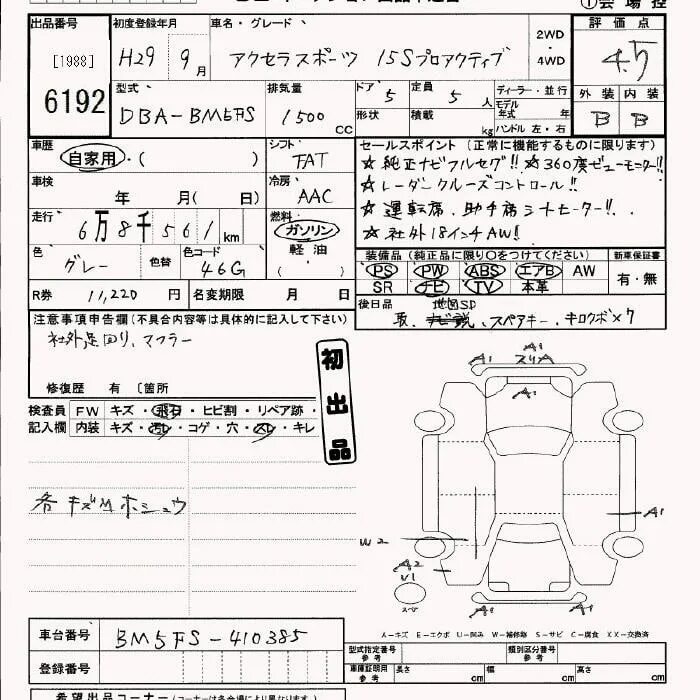 出品番号 初度登録年月 車名・グレード 2WD ・ 4WD 評価点
[1988] H29 9月 アクセラスポーツ 15Sプロアクティブ 4.5
6192 型式 排気量 ドア 5 定員 5人 ディーラー・並行 外装 内装
DBA-BM5FS 1500cc 形状 積載 kg モデル年式 年 B B
ハンドル 左・右
車歴 シフト セールスポイント (正常に機能するものに限ります)
自家用・( ) FAT ☆純正ナビフルセグ!! ☆360度ビューモニター!!
車検 冷房 ☆レーダークルーズコントロール!!
年 月(日) AAC ☆運転席、助手席シートヒーター!!
走行 燃料 ☆社外18インチAW!
6万8千561km ガソリン
色 色替 色コード 軽油 装備品 (純正品に限り○をつけてください) 新車保証書
グレー 46G ( ) PS PW ABS エアB AW 有・無
SR ナビ TV 本革
R券 11,220円 名変期限 月 日 後日品 地図SD
注意事項申告欄(不具合内容等は具体的に記入して下さい) 取、スペアキー、キロクボ×7
社外足回り、マフラー
修復歴 有 〔箇所
初出品
検査員 FW キズ・飛石・ヒビ割・リペア跡・
記入欄 内装 キズ・汚れ・コゲ・穴・スレ・キレ
各キズMホシュウ
A1
スリA
A1 A1
A1
W2
A2
U1
A1 A1
A-キズ E-エクボ U-凹み W-補修跡 S-サビ C-腐食 XX-交換済
車台番号 BM5FS-410385 型式指定番号 参考 類別区分番号 参考
登録番号 車庫証明用 参考 長さ cm 幅 cm 高さ cm
希望出品コーナー(コーナーは各会場により異なります)